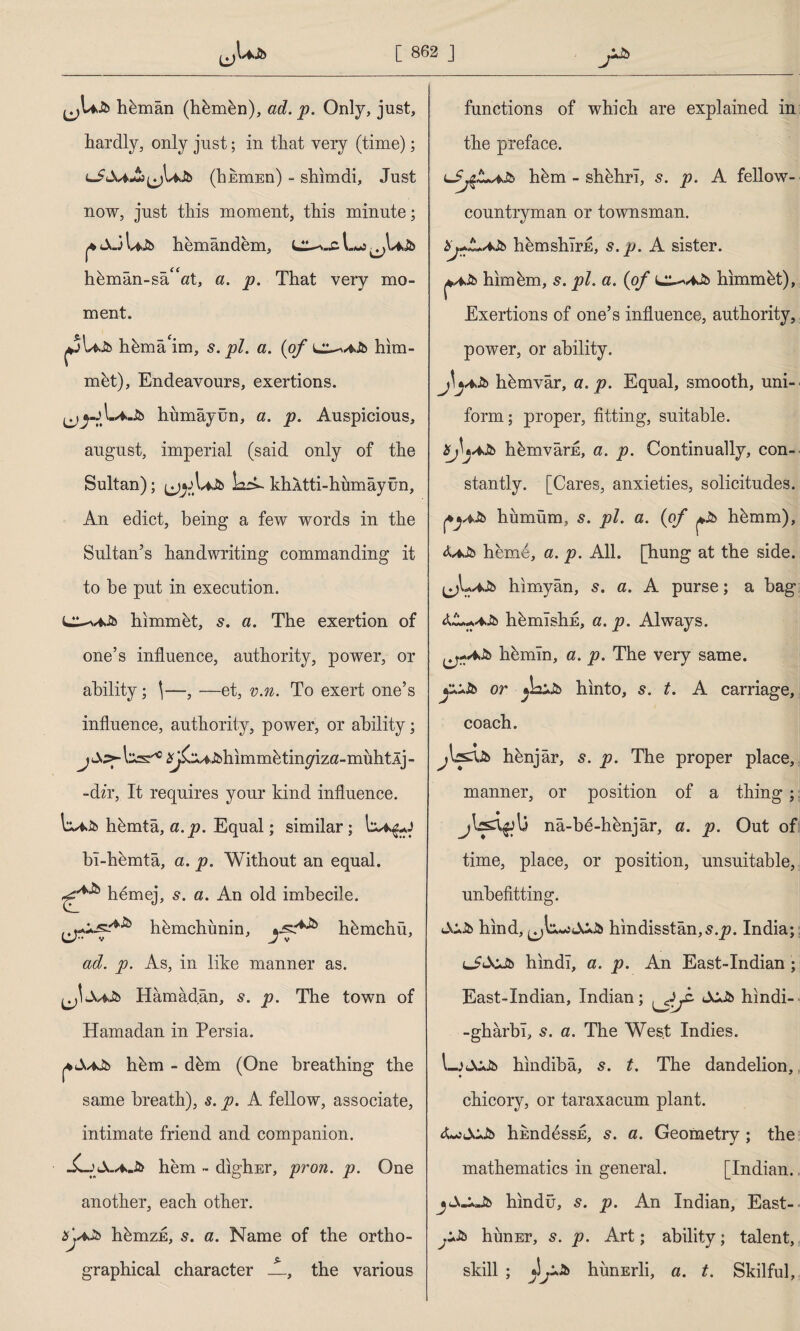 همان [ 862 ] هنر
همان hèmān (hèmèn), ad. p. Only, just,
hardly, only just; in that very (time);
همان شمدى (hEmEn) - shimdi, Just
now, just this moment, this minute;
هماندم hèmāndèm, همان ساعت
hèmān-sā‘‘at, a. p. That very mo-
ment.
همائم hèmā‘im, s. pl. a. (of همت him-
mèt), Endeavours, exertions.
همايون hùmāyūn, a. p. Auspicious,
august, imperial (said only of the
Sultan); خط همايون khÀtti-hùmāyūn,
An edict, being a few words in the
Sultan’s handwriting commanding it
to be put in execution.
همت himmèt, s. a. The exertion of
one’s influence, authority, power, or
ability; ا—, —et, v.n. To exert one’s
influence, authority, power, or ability;
همتكزه محتاجدر himmètingiza-mùhtĀj-
-dir, It requires your kind influence.
همتا hèmtā, a. p. Equal; similar; بيهمتا
bī-hèmtā, a. p. Without an equal.
همج hémej, s. a. An old imbecile.
همچنين hèmchùnin, همچو hèmchū,
ad. p. As, in like manner as.
همدان Hàmàdān, s. p. The town of
Hamadan in Persia.
همدم hèm - dèm (One breathing the
same breath), s. p. A fellow, associate,
intimate friend and companion.
همديكر hèm - dìghEr, pron. p. One
another, each other.
همزه hèmzÉ, s. a. Name of the ortho-
graphical character ء, the various
functions of which are explained in
the preface.
همشهرى hèm - shèhrī, s. p. A fellow-
countryman or townsman.
همشيره hèmshīrÉ, s. p. A sister.
همم himèm, s. pl. a. (of همت himmèt),
Exertions of one’s influence, authority,
power, or ability.
هموار hèmvār, a. p. Equal, smooth, uni-
form; proper, fitting, suitable.
همواره hèmvārÉ, a. p. Continually, con-
stantly. [Cares, anxieties, solicitudes.
هموم hùmūm, s. pl. a. (of هم hèmm),
همه hèmé, a. p. All. [hung at the side.
هميان himyān, s. a. A purse; a bag
هميشه hèmīshÉ, a. p. Always.
همين hèmīn, a. p. The very same.
هنتو or هنطو hinto, s. t. A carriage,
coach.
هنجار hènjār, s. p. The proper place,
manner, or position of a thing;
نابهنجار nā-bé-hènjār, a. p. Out of
time, place, or position, unsuitable,
unbefitting.
هند hind, هندستان hindisstān, s.p. India;
هندى hindī, a. p. An East-Indian;
East-Indian, Indian; هند غربى hindi-
-ghàrbī, s. a. The West Indies.
هندبا hindibā, s. t. The dandelion,
chicory, or taraxacum plant.
هندسه hEndéssÉ, s. a. Geometry; the
mathematics in general. [Indian.
هندو hindū, s. p. An Indian, East-
هنر hùnEr, s. p. Art; ability; talent,
skill; هنرلى hùnErli, a. t. Skilful,